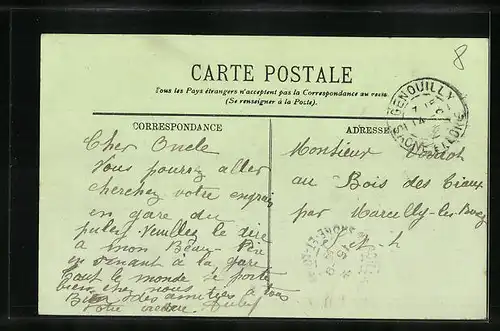 8
CARTE POSTALE
Tous les Pays étrangers n'acceptent pas la Correspondance au verso
(Se renseigner à la Poste).
GENOUILLY
SAONE-ET-LOIRE
CORRESPONDANCE
ADRESSE
Cher Oncle
Vous pourrez aller
cherchez votre engrais
en gare du
puley Veuillez le dire
a mon Beau-Père
en venant à la gare
tout le monde se porte
bien chez nous
Bien des amitiés à tous
Votre
Monsieur
au Bois des
par Marcilly-les-Buxy
S-L